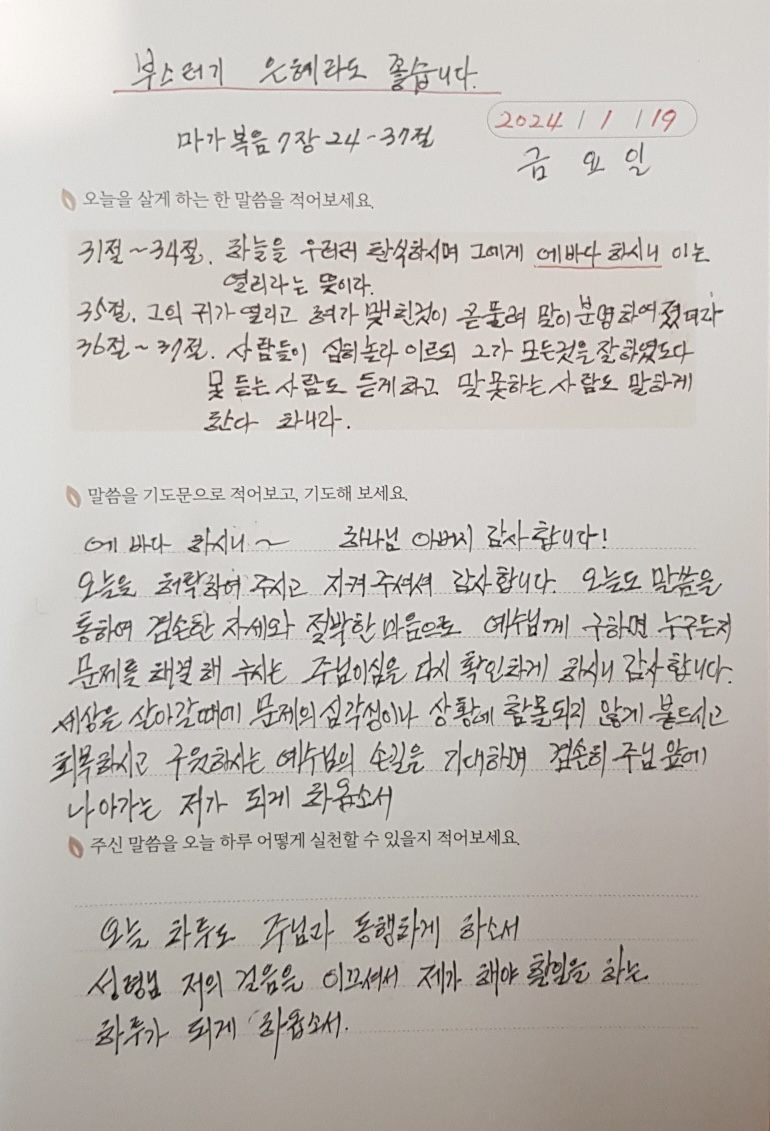 부스러기 은혜라도 좋습니다.
마가복음 7장 24-37절
2024 / 1 / 19
금 요 일
오늘을 살게 하는 한 말씀을 적어보세요.
31절~34절. 하늘을 우러러 탄식하시며 그에게 에바다 하시니 이는
열리라는 뜻이다.
35절. 그의 귀가 열리고 혀가 맺힌것이 곧 풀려 말이 분명하여졌더라
36절~37절. 사람들이 심히놀라 이르되 그가 모든것을 잘하였도다
못 듣는 사람도 듣게하고 말 못하는 사람도 말하게
한다 하니라.
말씀을 기도문으로 적어보고, 기도해 보세요.
에 바다 하시니~ 하나님 아버지 감사합니다!
오늘을 허락하여 주시고 지켜 주셔셔 감사합니다. 오늘도 말씀을
통하여 겸손한 자세와 절박한 마음으로 예수님께 구하면 누구든지
문제를 해결해 주시는 주님이심을 다시 확인하게 하시니 감사합니다.
세상을 살아갈때에 문제의 심각성이나 상황에 함몰되지 않게 붙드시고
회복하시고 구원하시는 예수님의 손길을 기대하며 겸손히 주님 앞에
나아가는 저가 되게 하옵소서
주신 말씀을 오늘 하루 어떻게 실천할 수 있을지 적어보세요.
오늘 하루도 주님과 동행하게 하소서
성령님 저의 걸음을 이끄셔서 제가 해야 할일을 하는
하루가 되게 하옵소서.